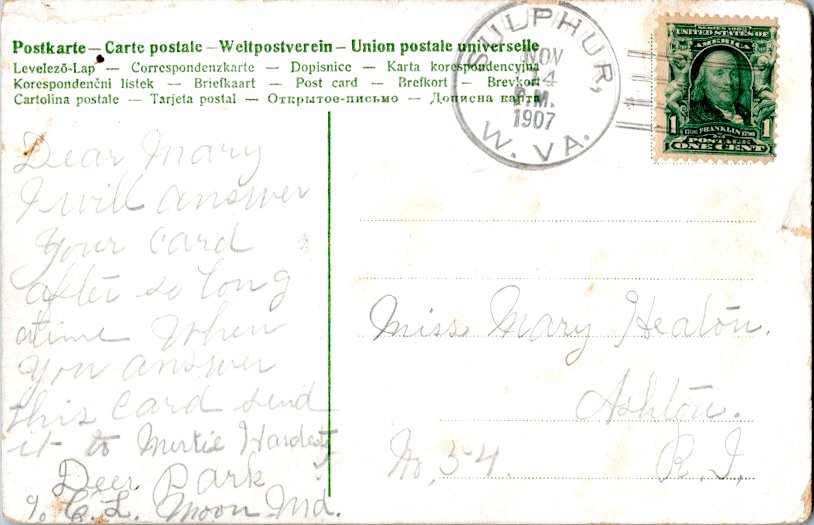 Postkarte — Carte postale — Weltpostverein — Union postale universelle
Levelező-Lap — Correspondenzkarte — Dopisnice — Karta korespondencyjna
Korespondenční lístek — Briefkaart — Post card — Brefkort — Brevkort
Cartolina postale — Tarjeta postal — Открытое-письмо — Дописна карта
SULPHUR,
NOV
14
P.M.
1907
W. VA.
SERIES 1902
UNITED STATES OF
AMERICA
1 FRANKLIN 1
POSTAGE
ONE CENT
Dear Mary
I will answer
Your Card
after so long
atime When
You answer
this Card send
it to Mertie Hardesty
Deer Park
℅ C. L. Moon Md.
Miss Mary Heaton.
Ashton.
No, 54. R. I,